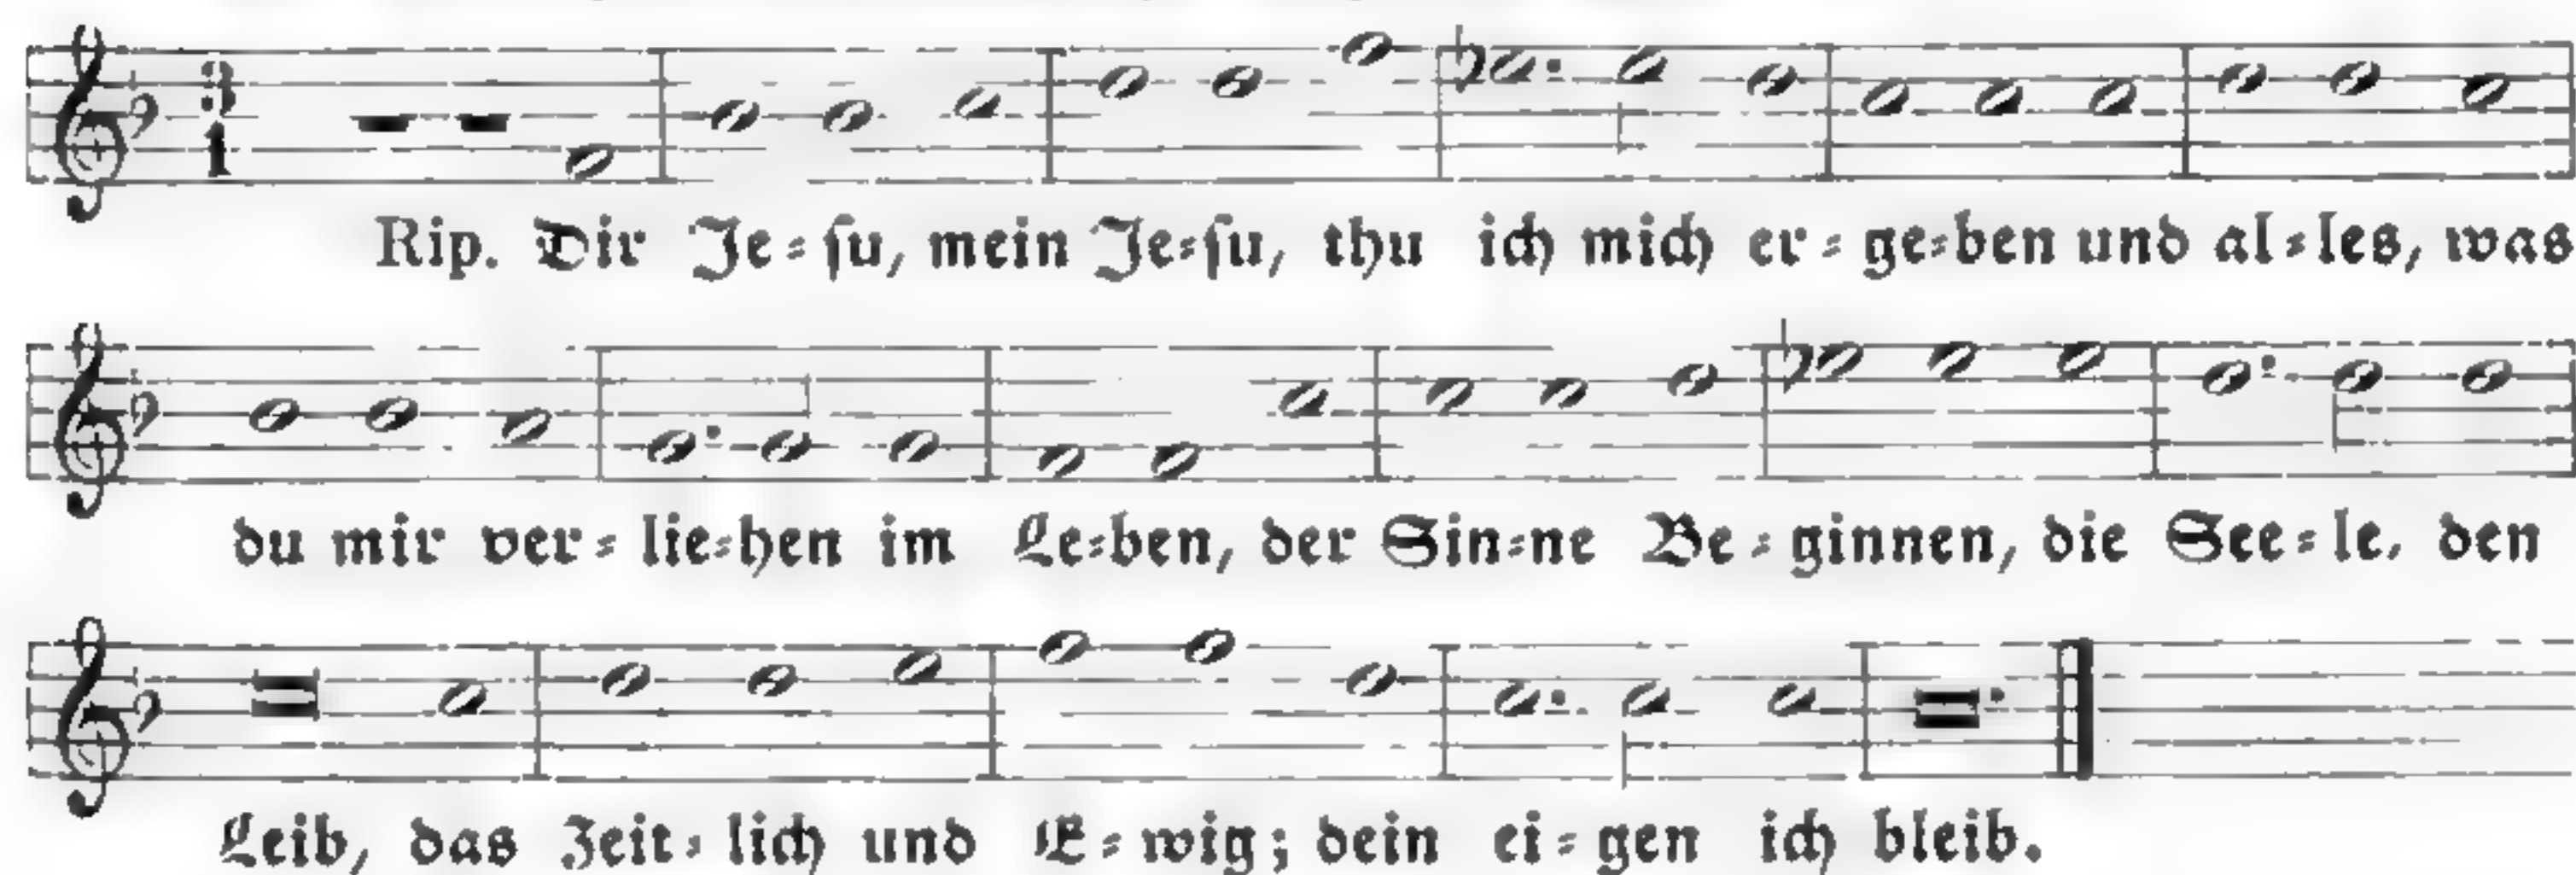 Rip. Dir Je⸗ſu, mein Je⸗ſu, thu ich mich er⸗ge⸗ben und al⸗les, was
du mir ver⸗lie⸗hen im Le⸗ben, der Sin⸗ne Be⸗ginnen, die See⸗le, den
Leib, das Zeit⸗lich und E⸗wig; dein ei⸗gen ich bleib.